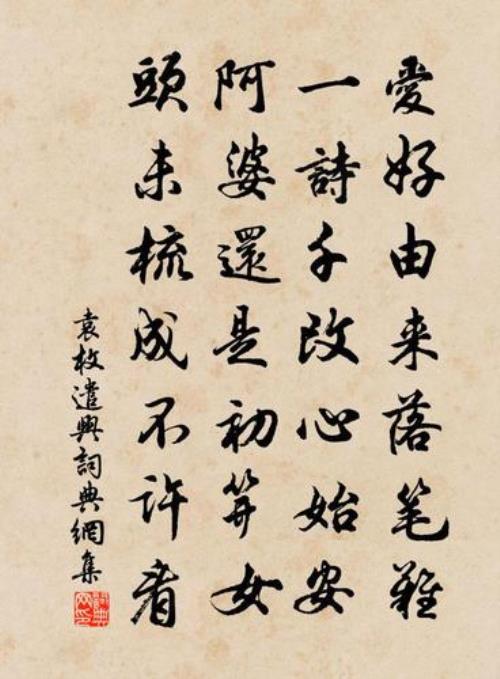 愛好由来落笔難
一詩千改心始安
阿婆還是初笄女
頭未梳成不許看
袁枚遣興詞典網集